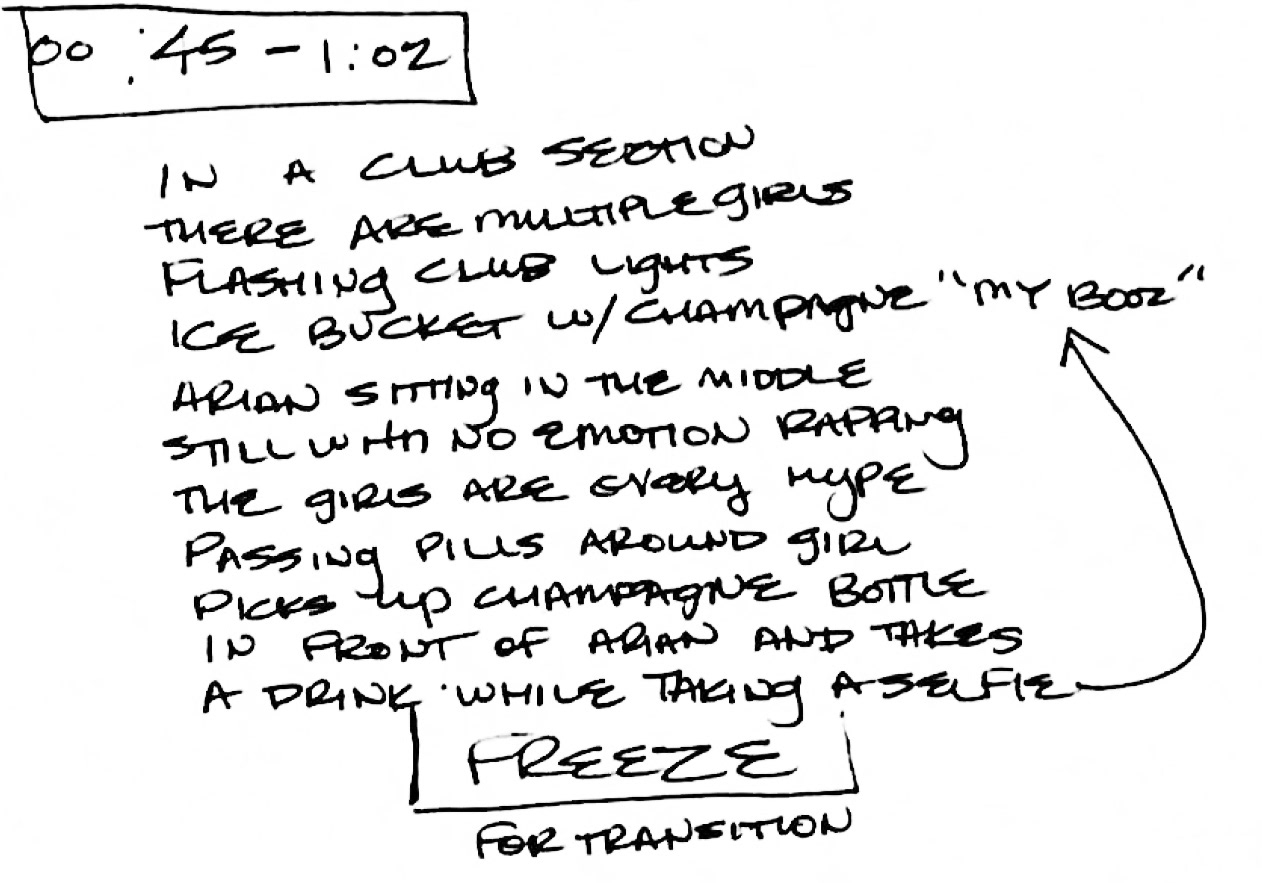 00:45 - 1:02
IN A CLUB SECTION
THERE ARE MULTIPLE GIRLS
FLASHING CLUB LIGHTS
ICE BUCKET W/ CHAMPAGNE "MY BOOZ"
ARIAN SITTING IN THE MIDDLE
STILL WITH NO EMOTION RAPPING
THE GIRLS ARE EVERY HYPE
PASSING PILLS AROUND GIRL
PICKS UP CHAMPAGNE BOTTLE
IN FRONT OF ARIAN AND TAKES
A DRINK WHILE TAKING A SELFIE
FREEZE
FOR TRANSITION